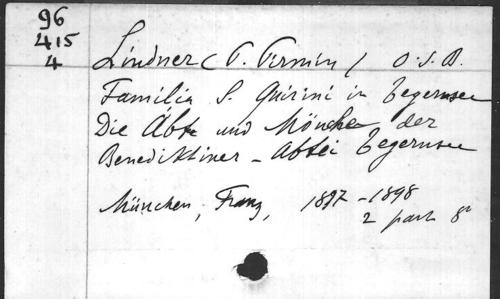 96
415
4
Lindner (P. Pirmin) O.S.B.
Familia S. Quirini in Tegernsee
Die Äbte und Mönche der
Benediktiner-Abtei Tegernsee
München, Franz, 1897-1898
2 part 8°